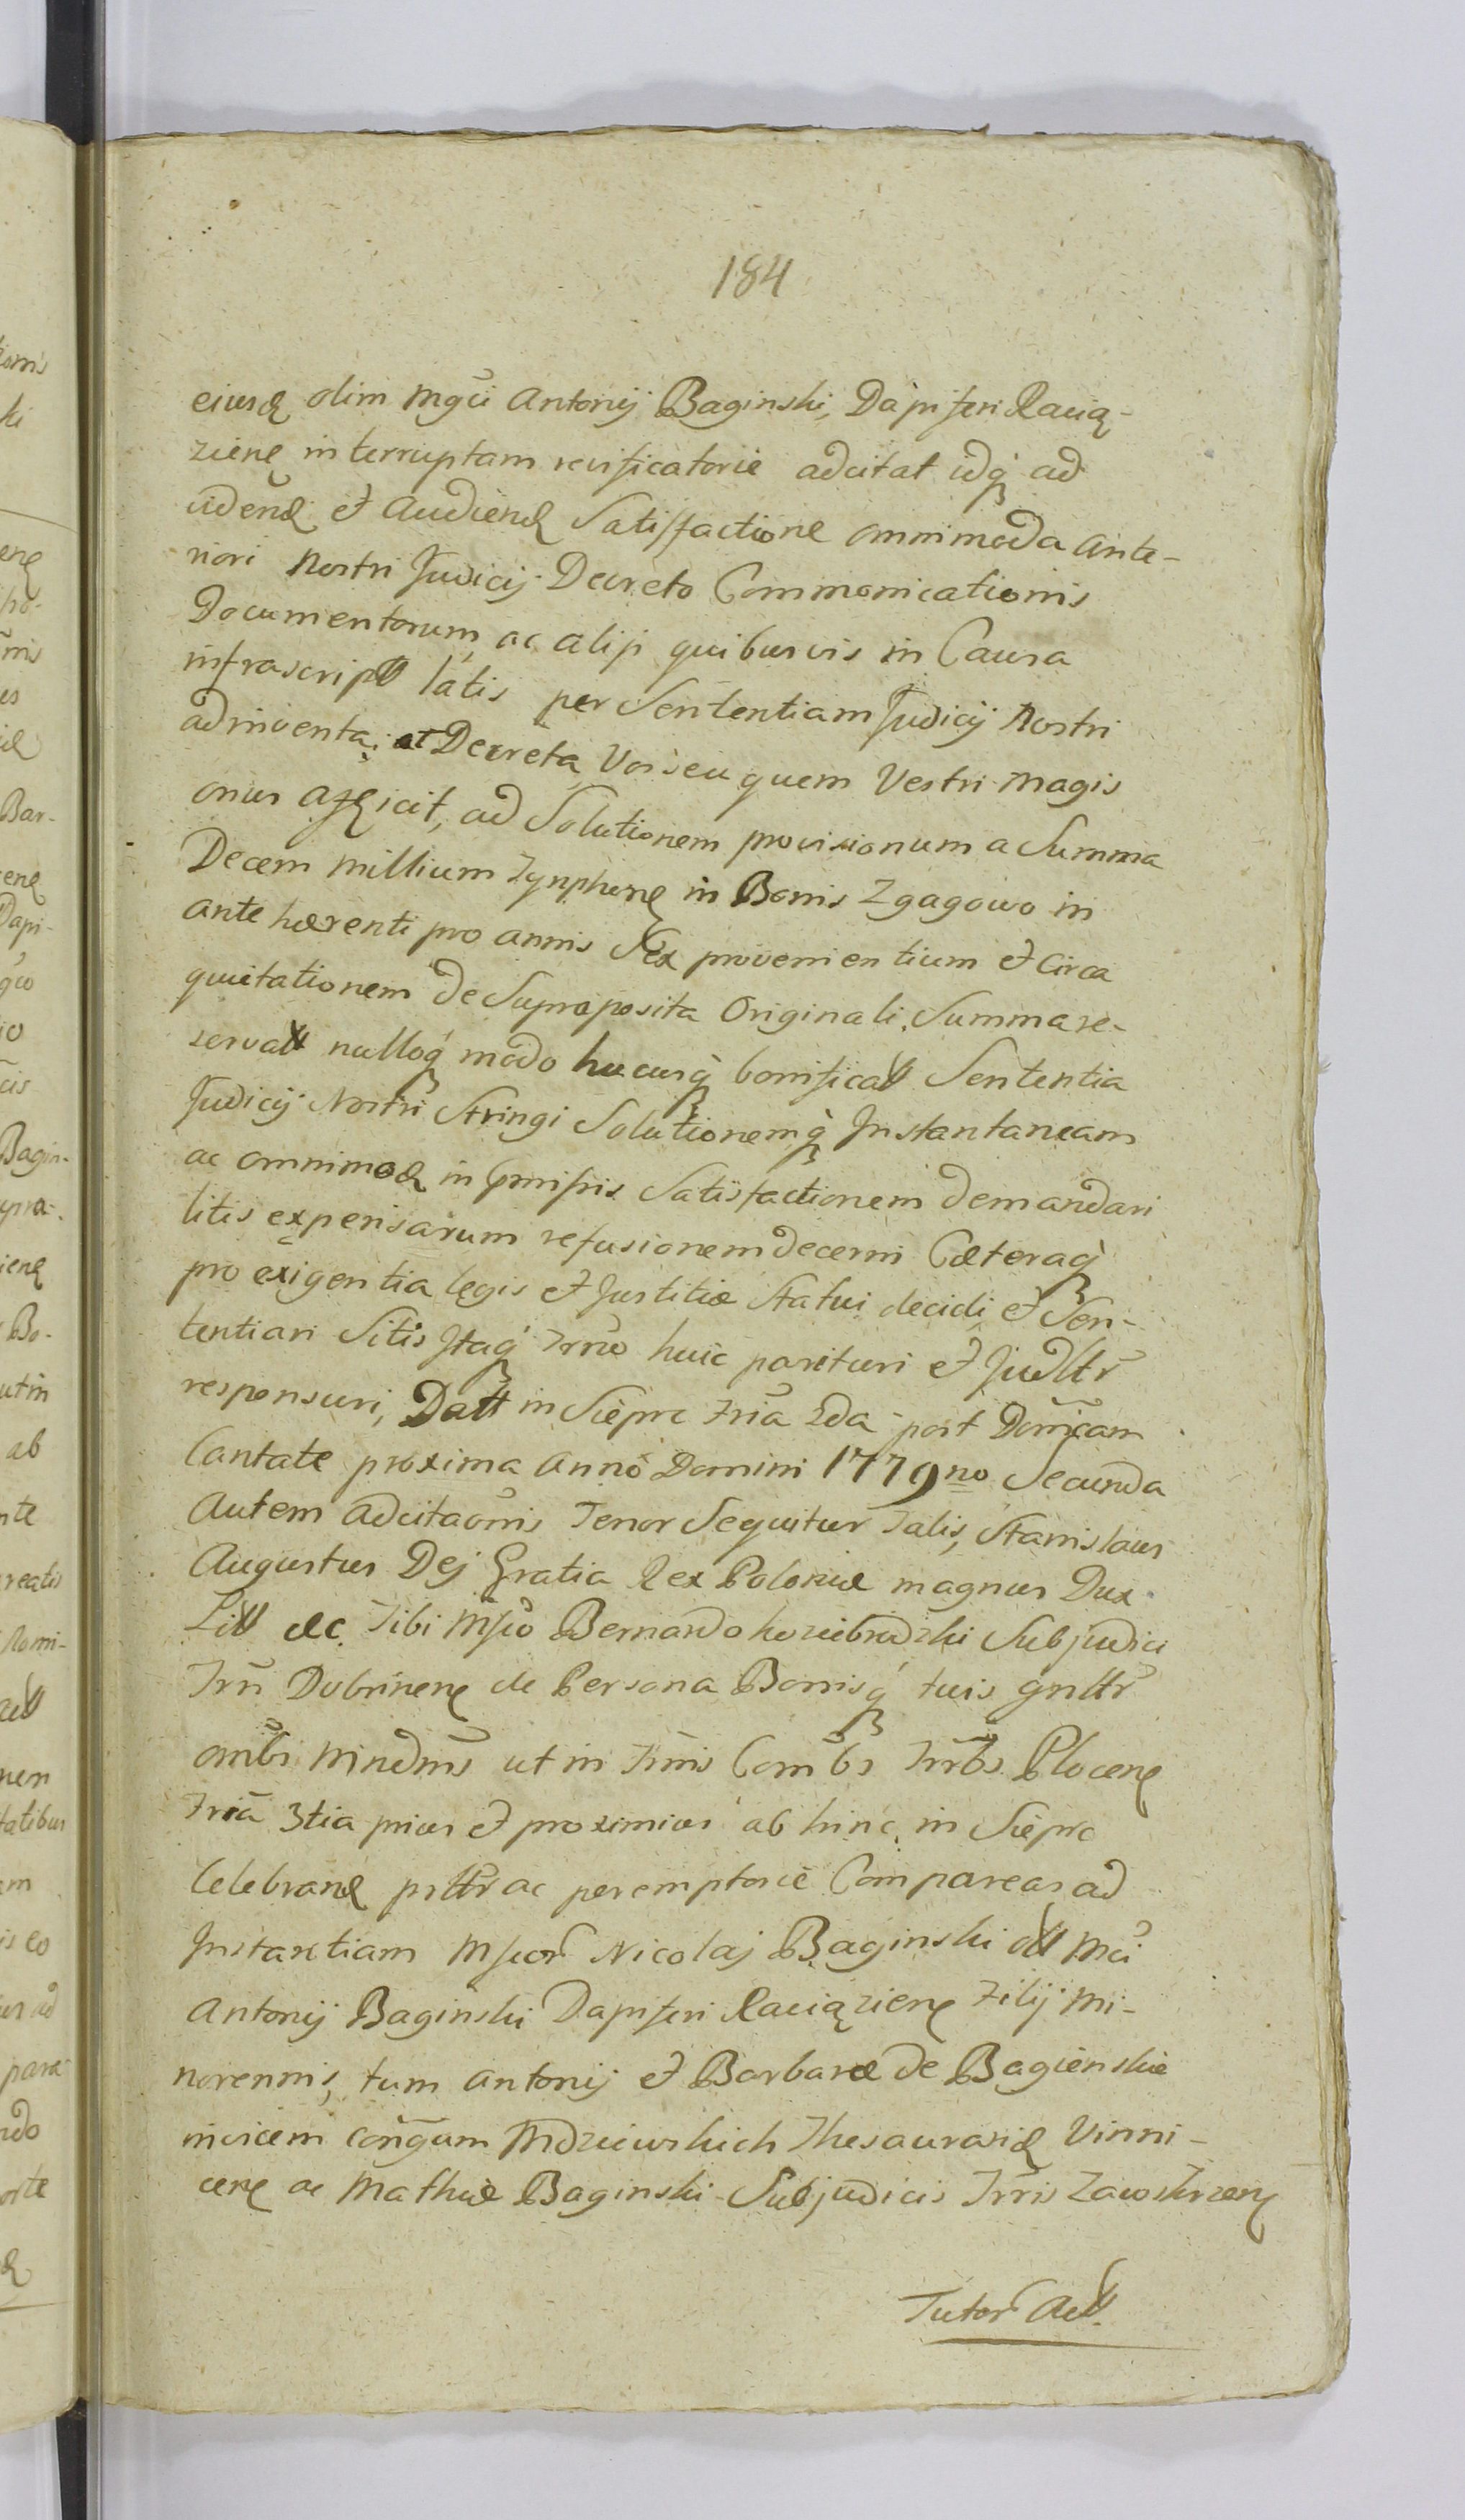 184
eiusd olim Mgci Antonij Baginski, Dapiferi Racią-
ziens interruptam reificatorie adcitat idq ad
videnđ et Audienđ Satisfactione omnimoda Ante-
riori Nostri Judicij Decreto Commonicationis
Documentorum ac alijs quibusvis in Causa
infrascript latis per Sententiam Judicij Nostri
adinventa, at Decreta Vos seu quem Vestri Magis
onus afficit, ad Solutionem provisionum a Summa
Decem Millium Tynphens in Bonis Zgagowo in
ante hærenti pro annis Sex provenientium et Circa
quietationem de Supraposita Originali Summa re-
servatt nulloq modo hucusq bonificatt Sententia
Judicij Nostri Stringi Solutionemq Instantaneam
ac omnimod in præmissis Satisfactionem demandari
litis expensarum refusionem decerni Cæteraq
pro exigentia legis et Justitiæ Statui decidi et Sen-
tentiari Sitis Itaq Trno huic parituri et Judltr
responsuri, Datt in Sieprc Fria 2da post Domcam
Cantate proxima Anno Domini 1779no Secunda
Autem Adcitaonis Tenor Sequitur Talis, Stanislaus
Augustus Dej Gratia Rex Poloniæ magnus Dux
Litt etc. Tibi Mfco Bernardo Koziebrodzki Subjudici
Trri Dobrinens de Persona Bonisq tuis gnltr
omibs Mndms ut in Trmis Combs Trrbs Plocens
Fria 3tia prius et proximius ab hinc in Sieprc
Celebranđ psltr ac peremptorie Compareas ad
Instantiam Mfcor Nicolaj Baginski ott Mci
Antonij Baginski Dapiferi Raciąziens Filij Mi-
norennis, tum Antonij et Barbaræ de Bagienskie
invicem congum Mdzewskich Thesaurarid Vinni-
cens ac Mathiæ Baginski Subjudicis Trris Zawskrzens
Tutor Act.